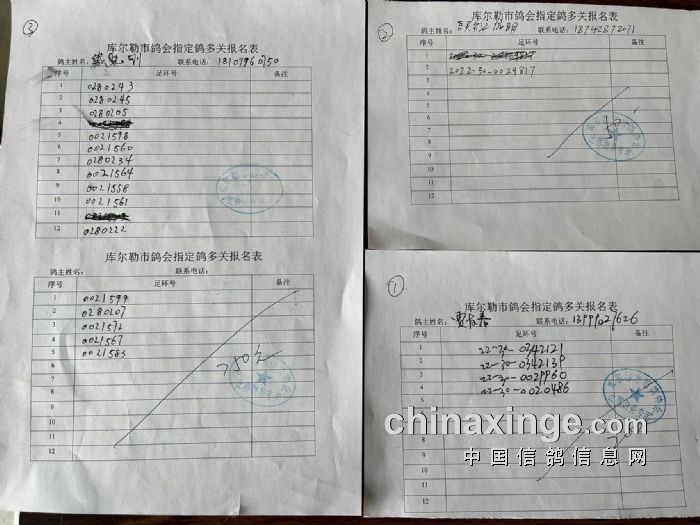 ③
库尔勒市鸽会指定鸽多关报名表
鸽主姓名: 联系电话: 18109960150
序号 足环号 备注
1 0280243
2 0280245
3 0280205
4
5 0021598
6 0021560
7 0280234
8 0021564
9 0021558
10 0021561
11
12 0280222
库尔勒市鸽会指定鸽多关报名表
鸽主姓名: 联系电话:
序号 足环号 备注
1 0021599
2 0280207
3 0021572
4 0021567
5 0021563
6
7 750元
8
9
10
11
12
②
库尔勒市鸽会指定鸽多关报名表
鸽主姓名: 联系电话: 18742872071
序号 足环号 备注
1
2 2022-30-0029817
3
4
5
6
7
8
9
10
11
12
①
库尔勒市鸽会指定鸽多关报名表
鸽主姓名: 联系电话: 13999021626
序号 足环号 备注
1 22-30-0342121
2 22-30-0342139
3 22-30-0029960
4 22-30-0020486
8
9
10
11
12
chinaxinge.com
中国信鸽信息网